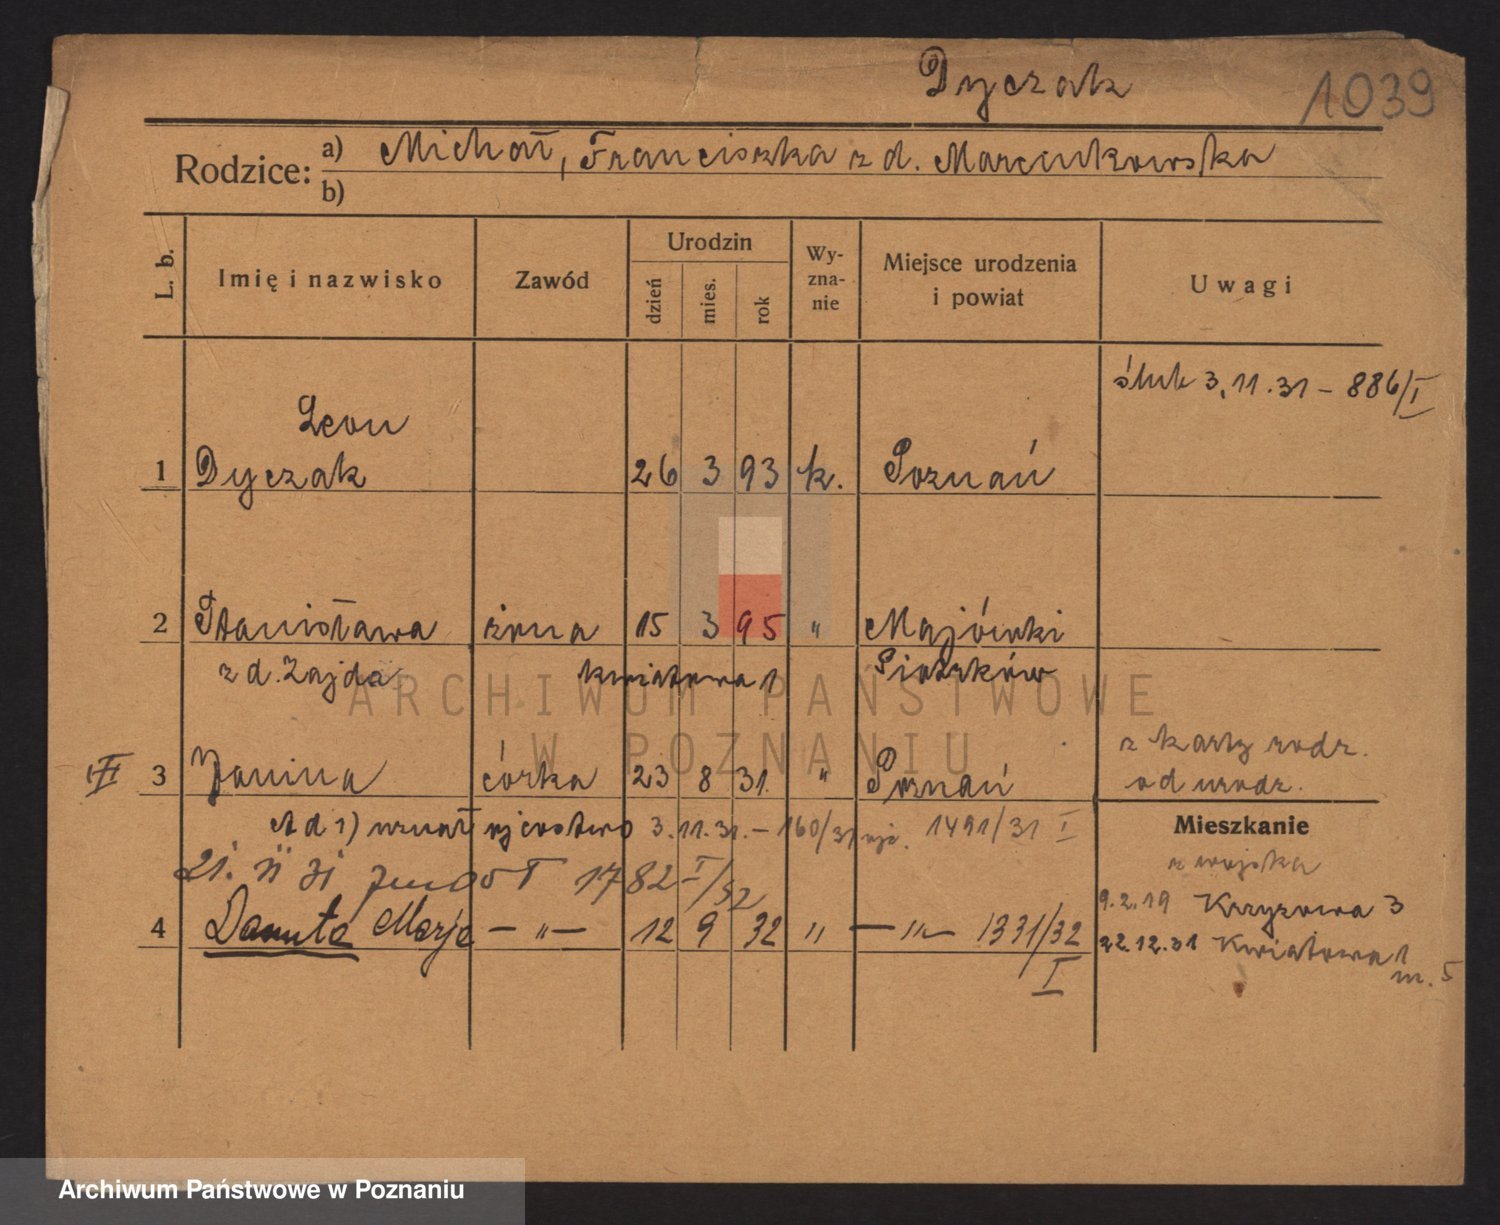 Dyczak 1039
Rodzice: a) Michał, Franciszka z d. Marcinkowska
b)
L. b. Imię i nazwisko Zawód Urodzin dzień mies. rok Wy-zna-nie Miejsce urodzenia i powiat Uwagi
ślub 3.11.31 – 886/I
Leon
1 Dyczak 26 3 93 k. Poznań
2 Stanisława żona 15 3 95 " Majówki
z d. Zajda Kwiatowa 1 Piotrków
z karty rodz.
3 Janina córka 23 8 31. " Poznań od urodz.
Ad 1) uznał ojcostwo 3.11.31. – 160/31 1491/31 I
Mieszkanie
z wojska
21. II 31 1782 I/32
9.2.19 Krzyżowa 3
4 Danuta Marja – " – 12 9 32 " – " – 1331/32
I
22.12.31 Kwiatowa 1
m. 5
ARCHIWUM PAŃSTWOWE
W POZNANIU
Archiwum Państwowe w Poznaniu